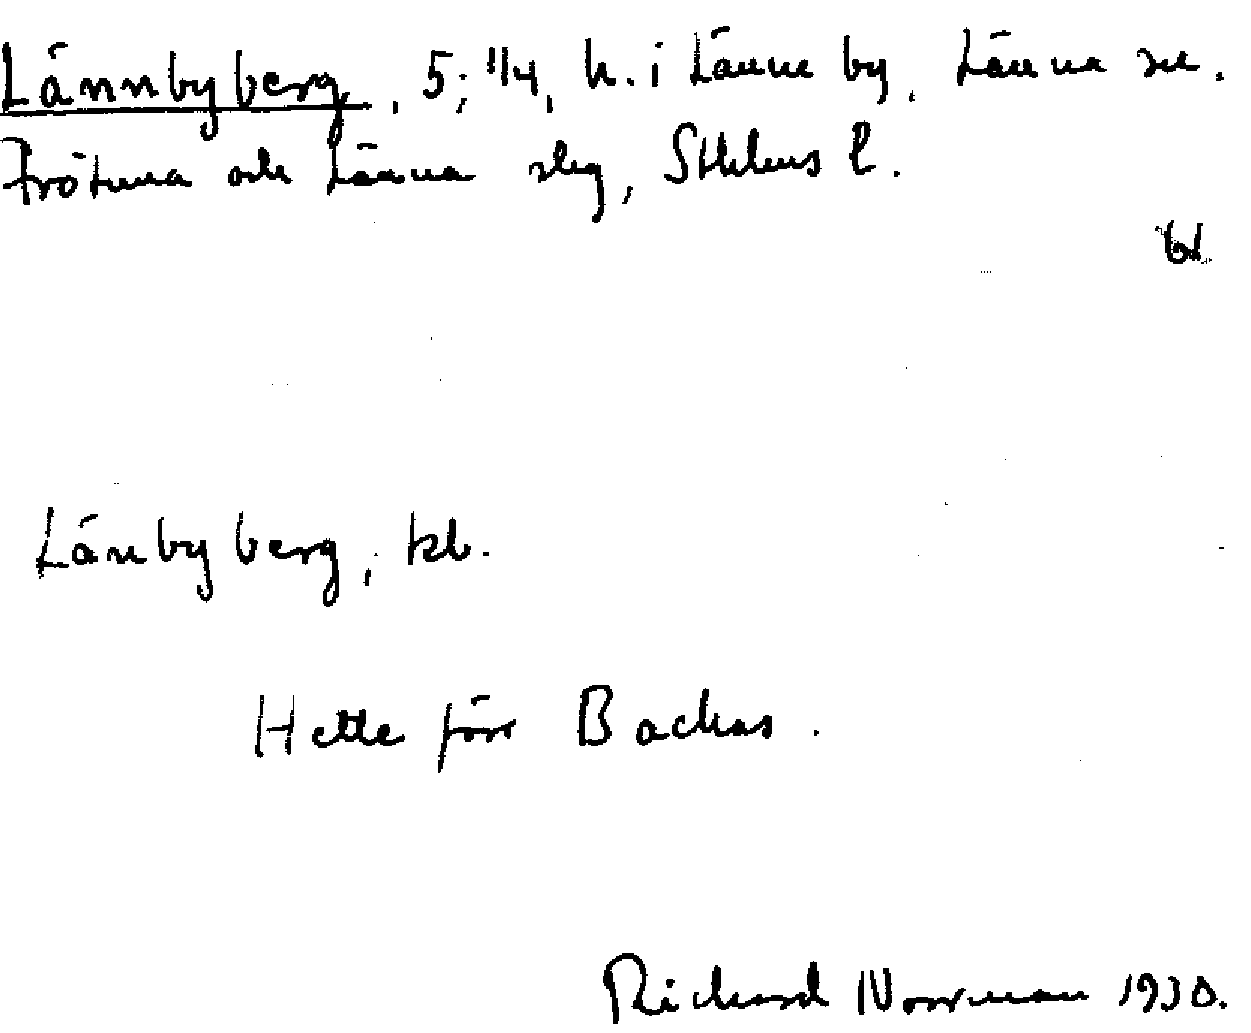 Lännbyberg, 5; 1/4, h. i Länne by, Länna sn.
Frötuna och Länna slg, Sthlms l.
Länbyberg, kb.
Hette förr Backas.
Richard Norrman 1930.